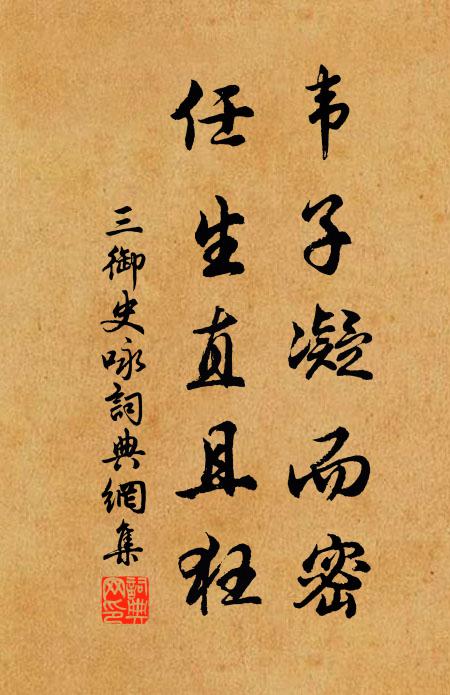 韦子凝而密
任生直且狂
三御史咏詞典網集
詞典
网印